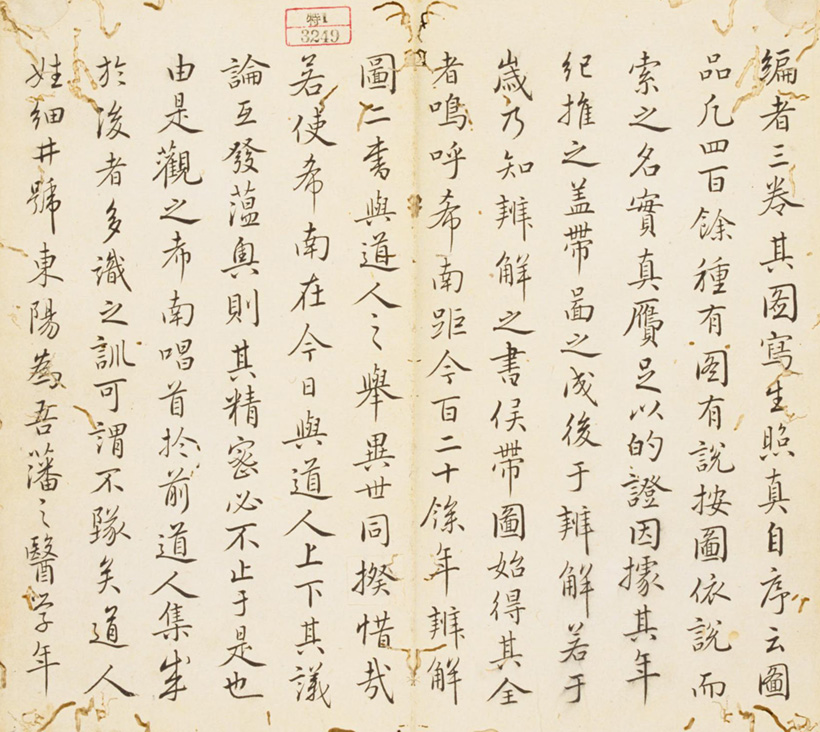 特1
3249
編者三卷其圖寫生照真自序云圖
品凡四百餘種有圖有說按圖依說而
索之名實真贋足以的證因據其年
紀推之盖帶啚之成後于辨解若于
歳乃知辨解之書俟帶圖始得其全
者嗚呼希南距今百二十餘年辨解
圖二書與道人之舉異世同揆惜哉
若使希南在今日與道人上下其議
論互發蘊奧則其精密必不止于是也
由是觀之希南唱首於前道人集成
於後者多識之訓可謂不墜矣道人
姓細井號東陽爲吾藩之醫学年